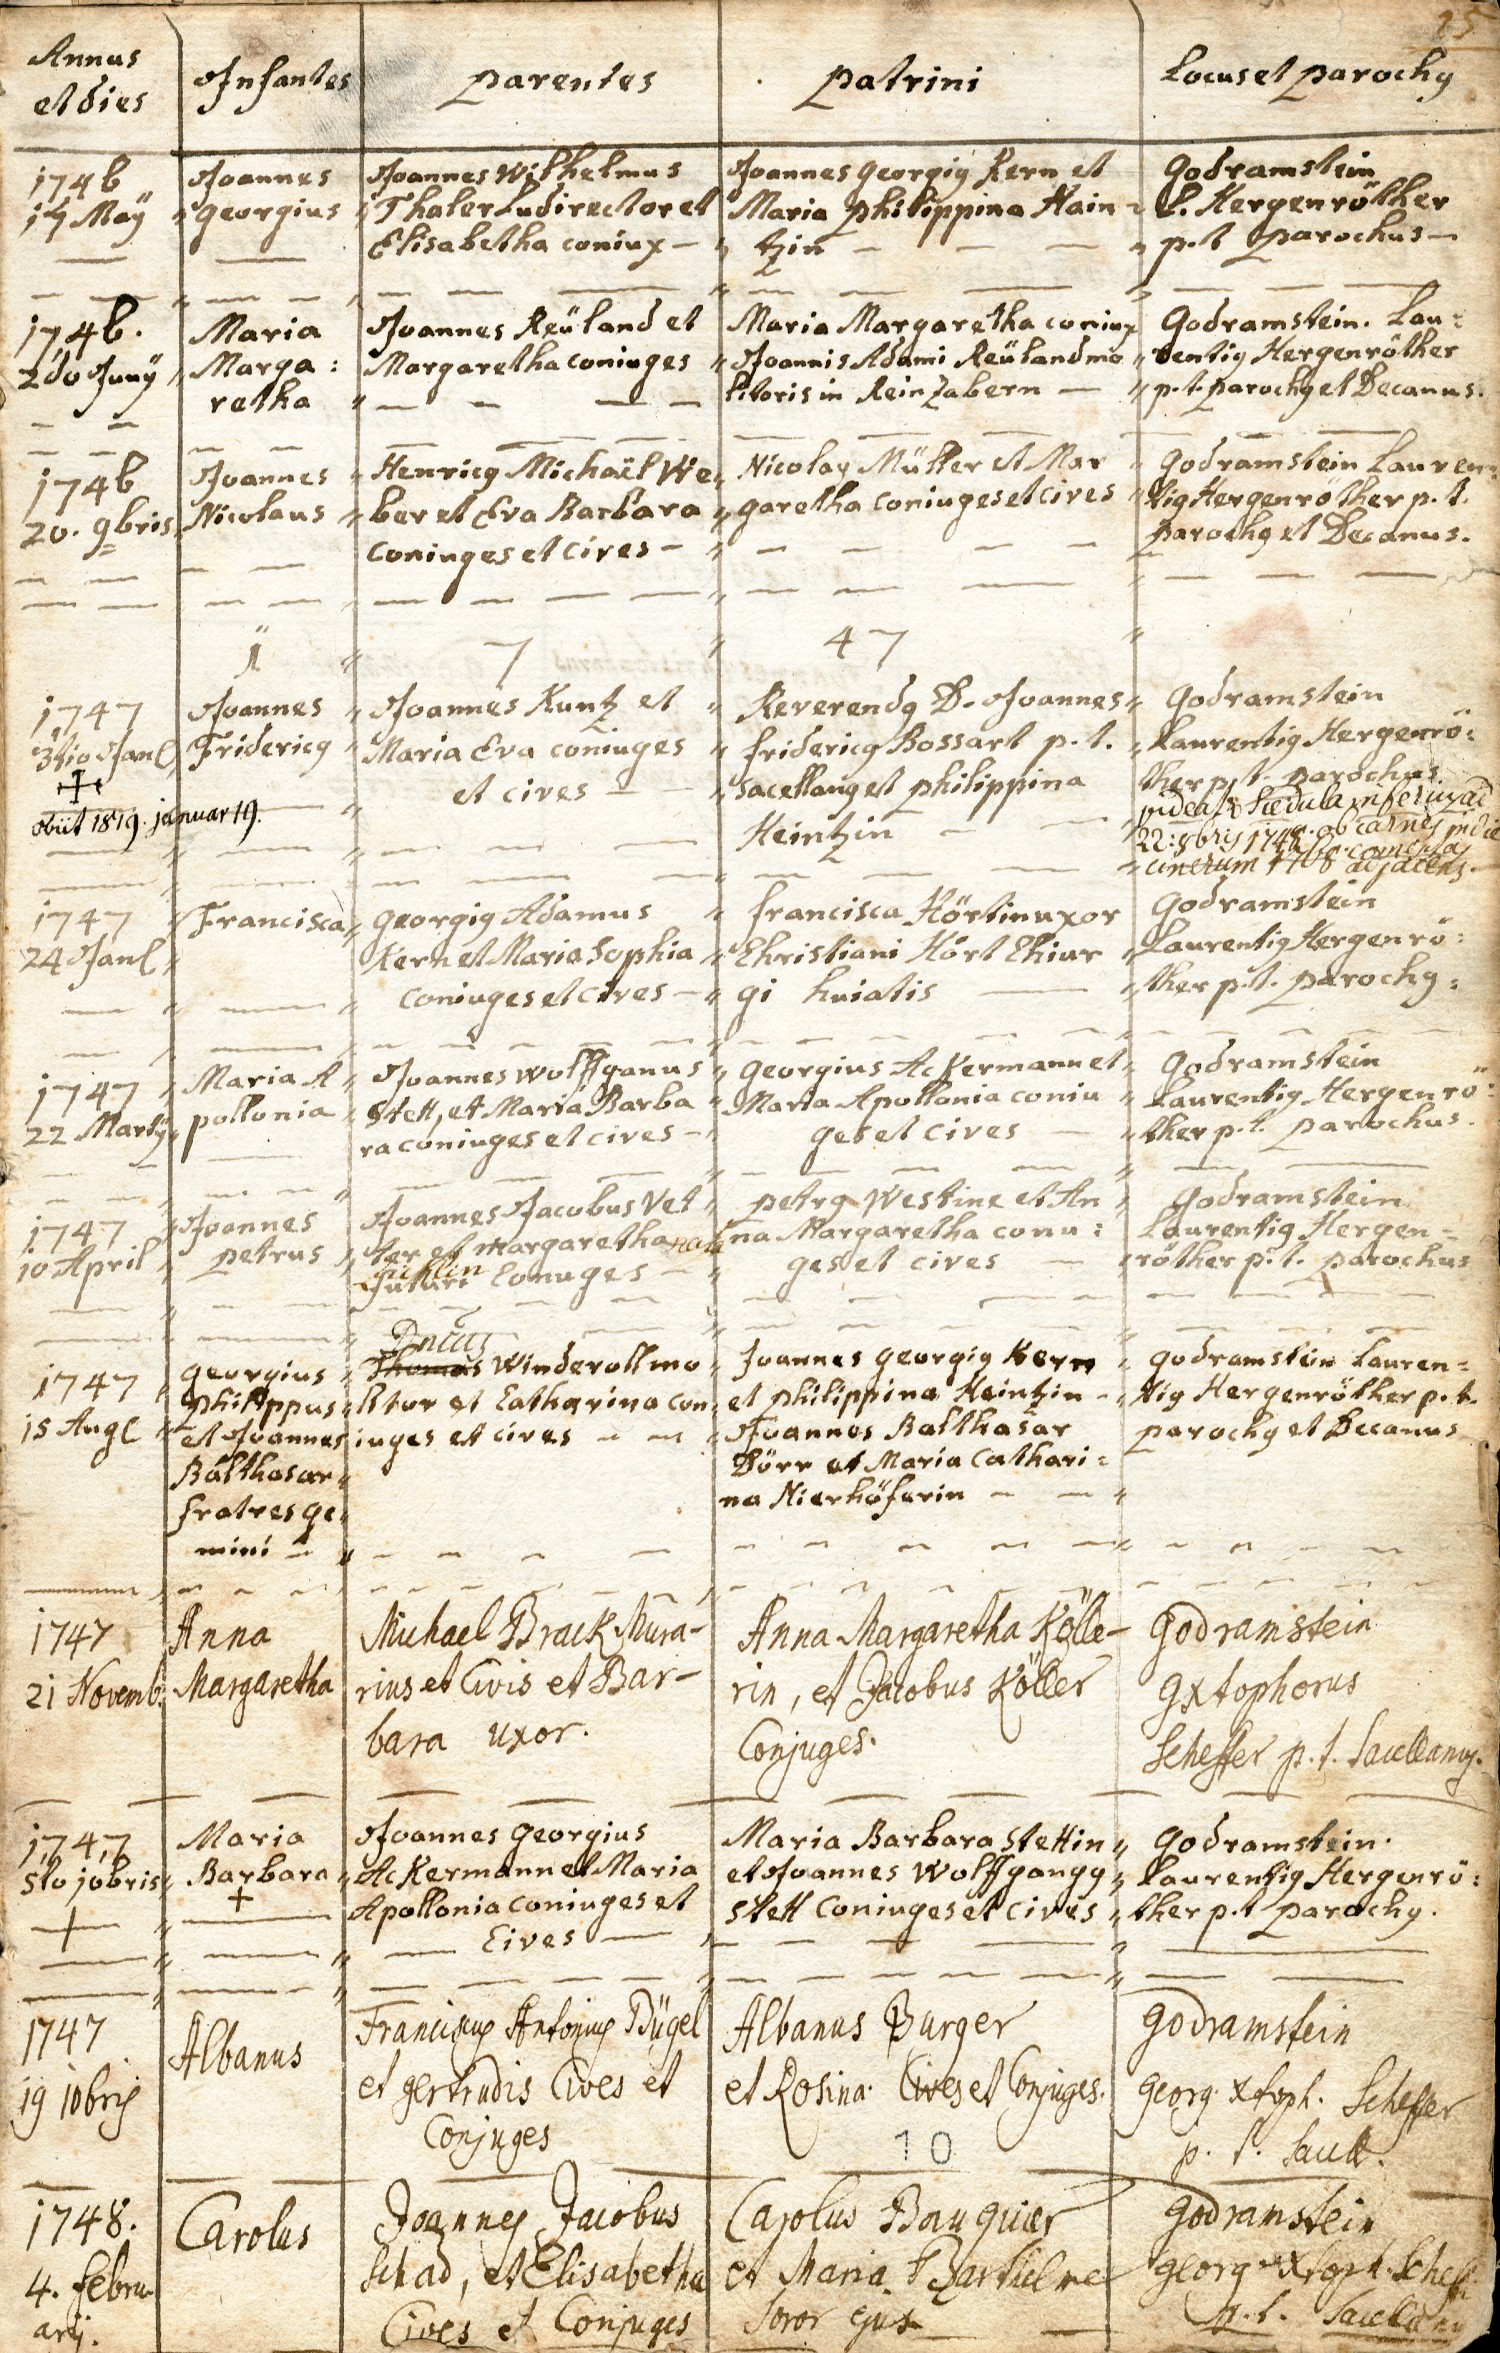 25
Annus
et dies
Infantes
parentes
patrini
Locus et parochq
1746
19 Maÿ
Joannes
Georgius
Joannes Wilhelmus
Thaler Ludirector et
Elisabetha coniux
Joannes Georgiq Kern et
Maria philippina Hain-
tzin
Godramstein
L. Hergenröther
p.t parochus
1746.
2do Junÿ
Maria
Marga:
retha
Joannes Reüland et
Margaretha coniuges
Maria Margaretha coniux
Joannis Adami Reüland mo
litoris in Reinzabern
Godramstein. Lau:
rentiq Hergenröther
p.t. parochq et Decanus.
1746
20. 9bris
Joannes
Nicolaus
Henricq Michaël We
ber et Eva Barbara
coniuges et cives
Nicolaq Müller et Mar
garetha coniuges et cives
Godramstein Lauren:
tiq Hergenröther p.t.
parochq et Decanus.
1 7 47
1747
3tio Janl
obiit 1819. januar 19.
Joannes
Fridericq
Joannes Kuntz et
Maria Eva coniuges
et cives
Reverendq D. Joannes
fridericq Bossart p.t.
sacellanq et philippina
Heintzin
Godramstein
Laurentiq Hergenrö:
ther p.t. parochus
videatr Scedula inferius ad
22: 8bris 1748
cinerum 1768 adjacens.
1747
24 Janl
Francisca
Georgiq Adamus
Kern et Maria Sophia
coniuges et cives
francisca Hörtin uxor
Christiani Hört Chiur
gi huiatis
Godramstein
Laurentiq Hergenrö:
ther p.t. parochq:
1747
22 Martÿ
Maria A
pollonia
Joannes wolffganus
Stett, et Maria Barba
ra coniuges et cives
Georgius Ackermann et
Maria Apollonia coniu
ges et cives
Godramstein
Laurentiq Hergenrö:
ther p.t. parochus.
1747
10 April
Joannes
petrus
Joannes Jacobus Vet
ter et Margaretha nata
futuri Coniuges
petrq Westine et An
na Margaretha coniu:
ges et cives
Godramstein
Laurentiq Hergen-
röther p.t. parochus
1747
15 Augl
Georgius
philippus
et Joannes
Balthasar
fratres ge
mini
Thomas Winderoll mo
litor et Catharina con
iuges et cives
Joannes Georgiq Kern
et philippina Heintzin
Joannes Balthasar
Dörr et Maria Cathari:
na Nierhöferin
Godramstein Lauren=
tiq Hergenröther p.t.
parochq et Decanus
1747
21 Novemb.
Anna
Margaretha
Michael Brack Mura-
rius et Civis et Bar-
bara uxor.
Anna Margaretha Kölle-
rin, et Jacobus Köller
Conjuges.
Godramstein
Gxtophorus
Scheffer p.t. Sacellanq.
1747
5to 10bris
Maria
Barbara
Joannes Georgius
Ackermann et Maria
Apollonia coniuges et
Cives
Maria Barbara Stettin
et Joannes Wolffgangq
Stett coniuges et cives
Godramstein.
Laurentiq Hergenrö:
ther p.t parochq.
1747
19 10brij
Albanus
Franciscus Antonius Bügel
et Gertrudis Cives et
Conjuges
Albanus Burger
et Rosina Cives et Conjuges.
10
Godramstein
Georg xtoph. Scheffer
p. t. Sacell.
1748.
4. febru-
arij.
Carolus
Joannes Jacobus
Schad, et Elisabetha
Cives et Conjuges
Carolus Bauquier
et Maria Barthelme
Soror ejus
Godramstein
Georg xtoph. Scheff.
p.t. Sacellanq